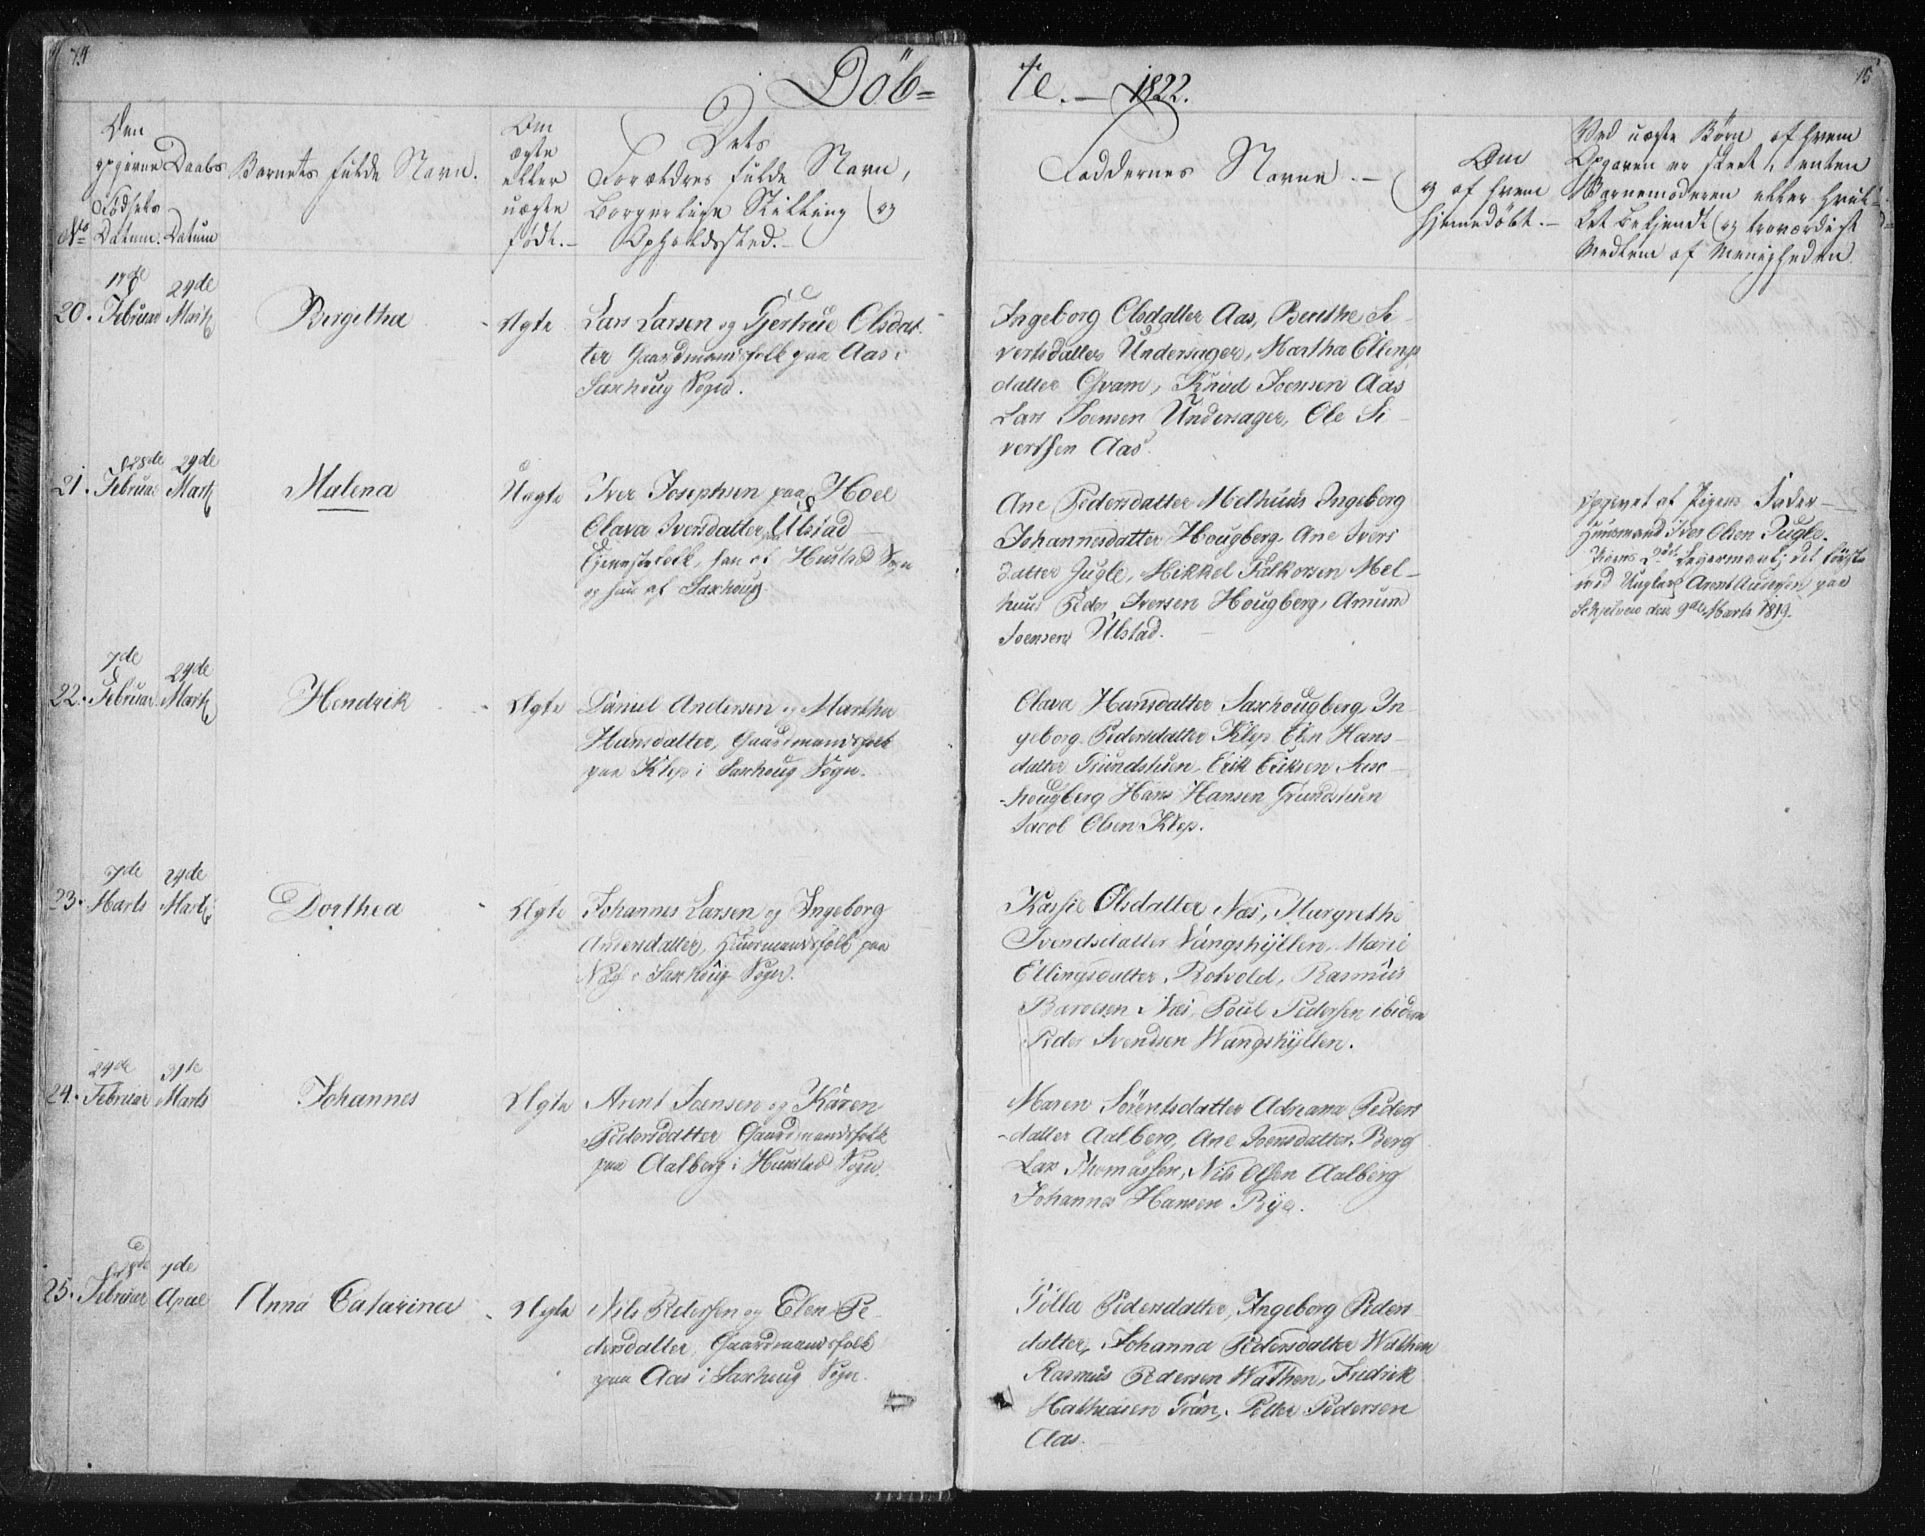 Döb=
te. — 1822.
15
Den
opgivne
Fødsels
Datum.
No
Daabs
Datum
Barnets fulde Navn.
Om
ægte
eller
uægte
født.—
Dets
Forældres fulde Navn,
Borgerlige Stilling og
Opholdssted.—
Faddernes Navne.—
Om
og af hvem
hjemmedöbt.—
Ved uægte Börn, af hvem
Opgaven er skeet, enten
Barnemoderen eller hvil-
det bekjendt og troværdigt
Medlem af Menigheden
20. Februar 24de Marts
Bergitha
Ægte
Lars Larsen og Gjertrue Olsdat
ter Gaardmandsfolk paa Aas i
Saxhoug Sogn.
Ingeborg Olsdatter Aas, Berethe Si
vertsdatter Undersager, Martha Ellings
datter Qvam, Knud Joensen Aas
Lars Joensen Undersager, Ole Si
vertsen Aas.
21. 28de Februar 24de Marts
Malena
Uægte
Iver Josephsen paa Hoel
Olava Iversdatter paa Ulstad
Tjenestefolk, han af Hustad Sogn
og hun af Saxhoug.
Ane Pedersdatter Melhuus Ingeborg
Johannesdatter Hougberg, Ane Ivers
datter Jugle, Mikkel Falkorsen Mel-
huus Peder Iversen Hougberg, Amund
Joensen Ulstad.
Opgivet af Pigens Fader—
Huusmand Iver Olsen Jugle.
Pigens 2det Leiermaal; det første
med Ungkarl Arent Andersen paa
den 9de Marts 1819.
22. 7de Februar 24de Marts
Hendrik
Ægte
Daniel Andersen og Martha
Hansdatter, Gaardmandsfolk
paa Klep i Saxhoug Sogn.
Olava Hansdatter Saxhougberg, In-
geborg Pedersdatter Klep Elen Hans-
datter Grundstuen, Erik Eriksen Sax-
-hougberg Hans Hansen Grundstuen
Jacob Olsen Klep.
23. 7de Marts 24de Marts
Dorthea
Ægte
Johannes Larsen og Ingeborg
Andersdatter, Huusmandsfolk paa
Næs i Saxhoug Sogn.
Kassie Olsdatter Næs, Margrethe
Svendsdatter Vangshyllen, Marie
Ellingsdatter Rotvold, Rasmus
Næs, Poul Pedersen ibidem
Peder Svendsen Wangshyllen.
24. 24de Februar 31te Marts
Johannes
Ægte
Arent Joensen og Karen
Pedersdatter Gaardmandsfolk
paa Aalberg i Hustad Sogn.
Maren Sörentsdatter Adriana Peders
-datter Aalberg, Ane Joensdatter Berg
Lars Thomassen, Nils Olsen Aalberg
Johannes Hansen Rye.
25. Februar 7de April
Anna Catarina
Ægte
Nils Pedersen og Elen Pe
dersdatter, Gaardmandsfolk
paa Aas i Saxhoug Sogn.
Pedersdatter, Ingeborg Peders
datter, Johanna Pedersdatter Wathen
Rasmus Pedersen Wathen, Fredrik
Mathiasen Grön, Petter Pedersen
Aas.